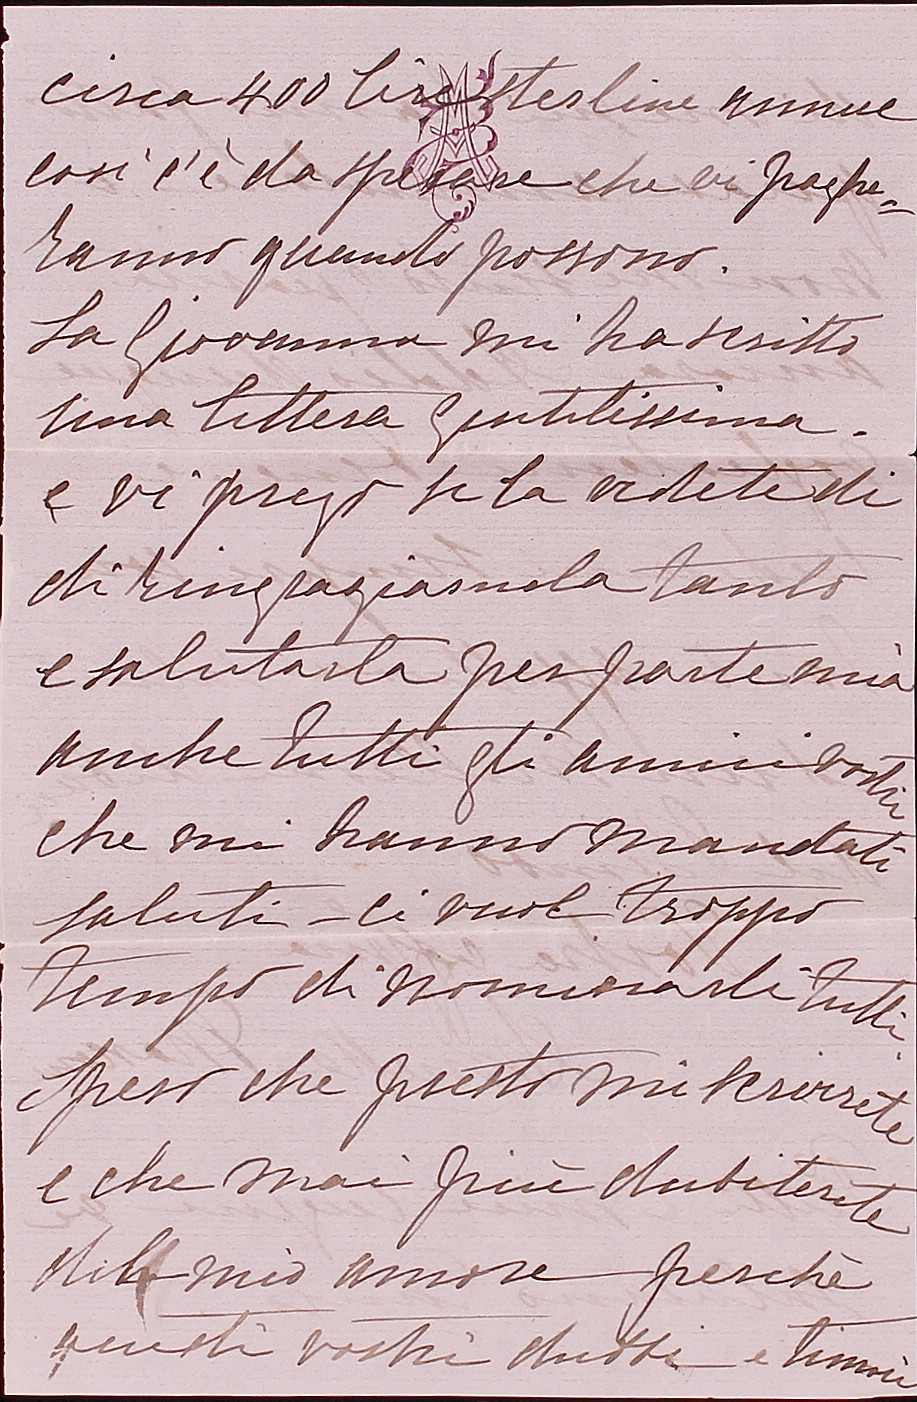 circa 400 lire sterline annue
così c'è da sperare che vi paghe=
ranno quando possono.
La Giovanna mi ha scritto
una lettera gentilissima.
e vi prego se la vedete di
di ringragiarnela tanto
e salutarla per parte mia
anche tutti gli amici vostri
che mi hanno mandati
saluti - ci vuol troppo
tempo di nominarli tutti.
Spero che presto mi scrivrete
e che mai più dubiterete
del mio amore perchè
questi vostri dubbi e timori